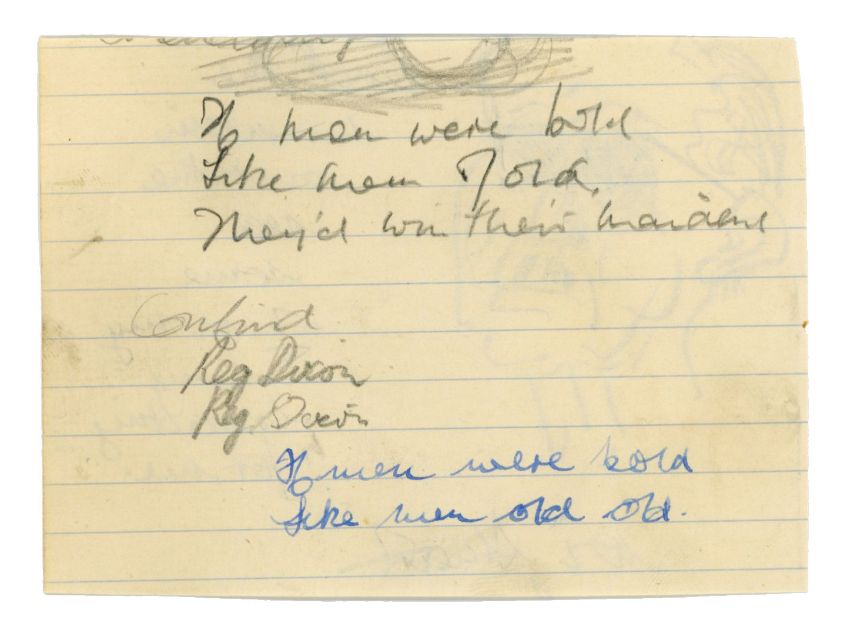 If men were bold
Like men of old,
They'd win their maidens
Confind
Reg Dixon
Reg Dixon
If men were bold
Like men old old.